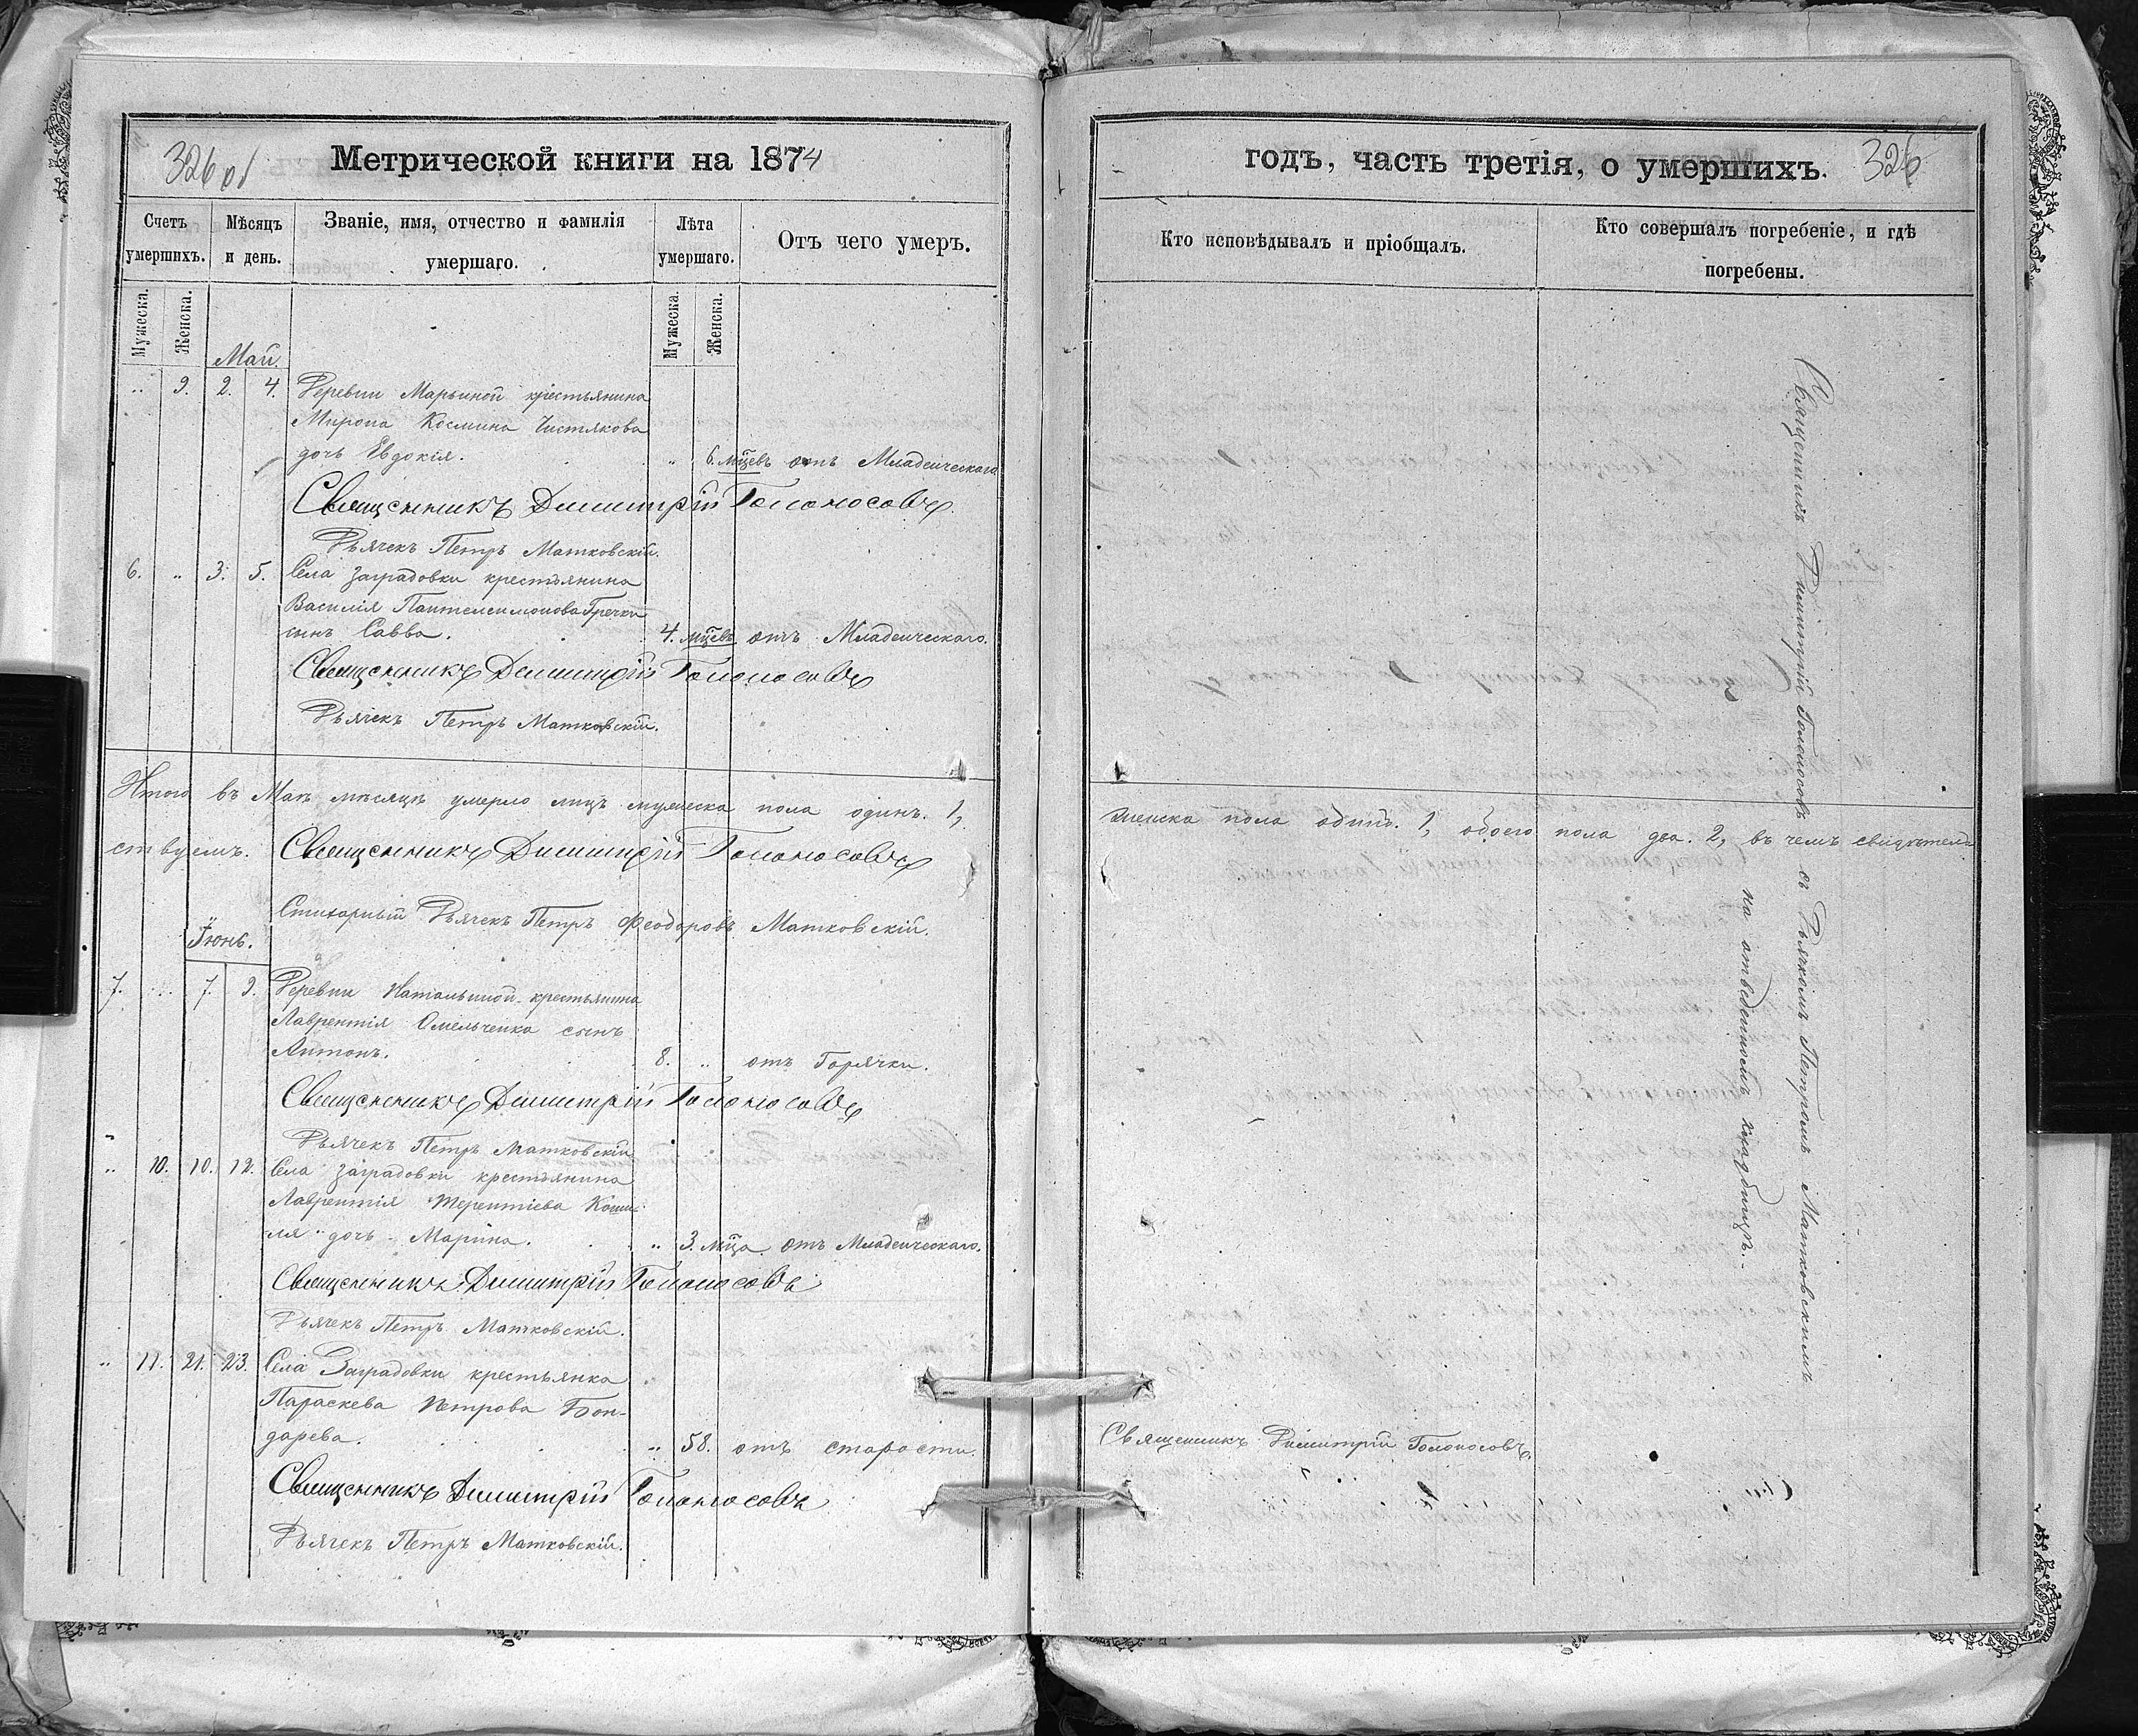 326 об
Метрической книги на 1874
Счетъ умершихъ.
Мѣсяцъ и день.
Званіе, имя, отчество и фамилія умершаго.
Лѣта умершаго.
Отъ чего умеръ.
Мужеска.
Женска.
Мужеска.
Женска.
Май.
„ 9. 2. 4. Деревни Марьиной крестьянина
Мирона Космина Чистякова
дочь Евдокія. „ 6. мцевъ отъ Младенческаго
Священникъ Димитрій Голоносовъ.
Дьячекъ Петръ Матковскій.
6. „ 3. 5. Села Заградовки крестьянина
Василія Пантелеимонова Гречки
сынъ Савва. 4. мцевъ. отъ Младенческаго.
Священникъ Димитрій Голоносовъ
Дьячекъ Петръ Матковскій.
Итого въ Маѣ мѣсяцѣ умерло лицъ мужеска пола одинъ. 1,
ствуемъ. Священникъ Димитрій Голоносовъ
Стихарный Дьячекъ Петръ Феодоровъ Матковскій.
Іюнь.
7. „ 7. 9. Деревни Натальиной крестьянина
Лаврентія Омельченка сынъ
Антонъ. 8. „ отъ Горячки.
Священникъ Димитрій Голоносовъ
Дьячекъ Петръ Матковскій
„ 10. 10. 12. Села Заградовки крестьянина
Лаврентія Терентіева Коши-
ля дочь Марина. „ 3. мца отъ Младенческаго.
Священникъ Димитрій Голоносовъ
Дьячекъ Петръ Матковскій.
„ 11. 21. 23. Села Заградовки крестьянка
Параскева Петрова Бон-
дарева. „ 58. отъ старости.
Священникъ Димитрій Голоносовъ
Дьячекъ Петръ Матковскій.
годъ, часть третія, о умершихъ.
326
Кто исповѣдывалъ и пріобщалъ.
Кто совершалъ погребеніе, и гдѣ
погребены.
женска пола одинъ. 1, обоего пола два. 2, въ чемъ свидѣтель-
Священникъ Димитрій Голоносовъ съ Дьячкомъ Петромъ Матковскимъ
на отведенномъ кладбищѣ.
Священникъ Димитрій Голоносовъ.